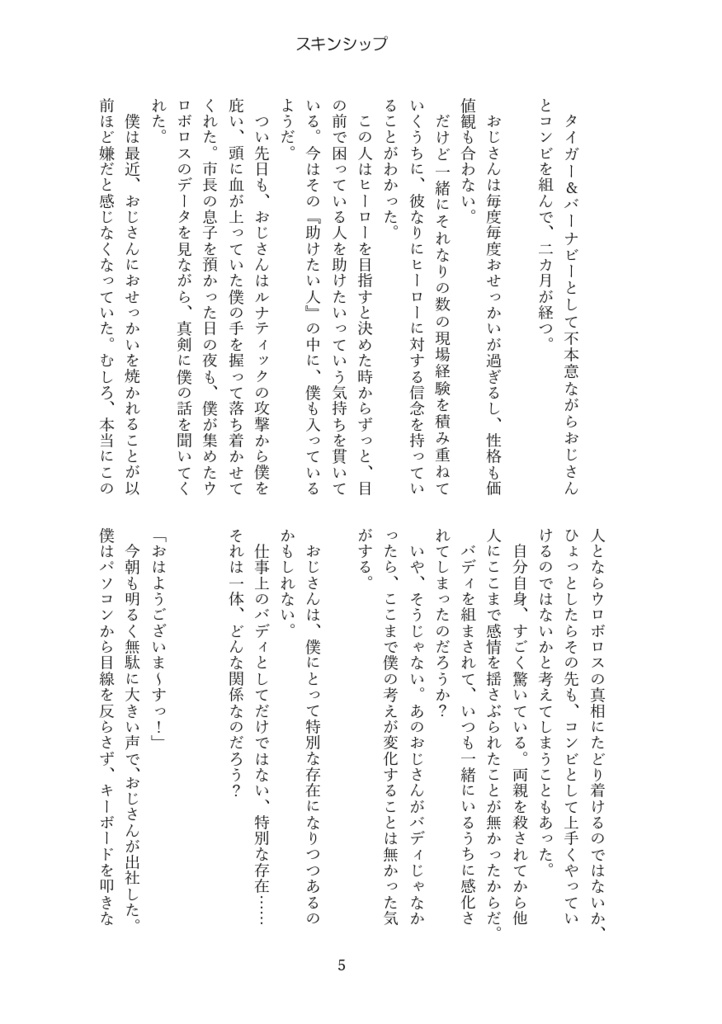 スキンシップ
タイガー&バーナビーとして不本意ながらおじさん
とコンビを組んで、二カ月が経つ。
おじさんは毎度毎度おせっかいが過ぎるし、性格も価
値観も合わない。
だけど一緒にそれなりの数の現場経験を積み重ねて
いくうちに、彼なりにヒーローに対する信念を持ってい
ることがわかった。
この人はヒーローを目指すと決めた時からずっと、目
の前で困っている人を助けたいっていう気持ちを貫いて
いる。今はその『助けたい人』の中に、僕も入っている
ようだ。
つい先日も、おじさんはルナティックの攻撃から僕を
庇い、頭に血が上っていた僕の手を握って落ち着かせて
くれた。市長の息子を預かった日の夜も、僕が集めたウ
ロボロスのデータを見ながら、真剣に僕の話を聞いてく
れた。
僕は最近、おじさんにおせっかいを焼かれることが以
前ほど嫌だと感じなくなっていた。むしろ、本当にこの
人とならウロボロスの真相にたどり着けるのではないか、
ひょっとしたらその先も、コンビとして上手くやってい
けるのではないかと考えてしまうこともあった。
自分自身、すごく驚いている。両親を殺されてから他
人にここまで感情を揺さぶられたことが無かったからだ。
バディを組まされて、いつも一緒にいるうちに感化さ
れてしまったのだろうか？
いや、そうじゃない。あのおじさんがバディじゃなか
ったら、ここまで僕の考えが変化することは無かった気
がする。
おじさんは、僕にとって特別な存在になりつつあるの
かもしれない。
仕事上のバディとしてだけではない、特別な存在……
それは一体、どんな関係なのだろう？
「おはようございま〜すっ！」
今朝も明るく無駄に大きい声で、おじさんが出社した。
僕はパソコンから目線を反らさず、キーボードを叩きな
5